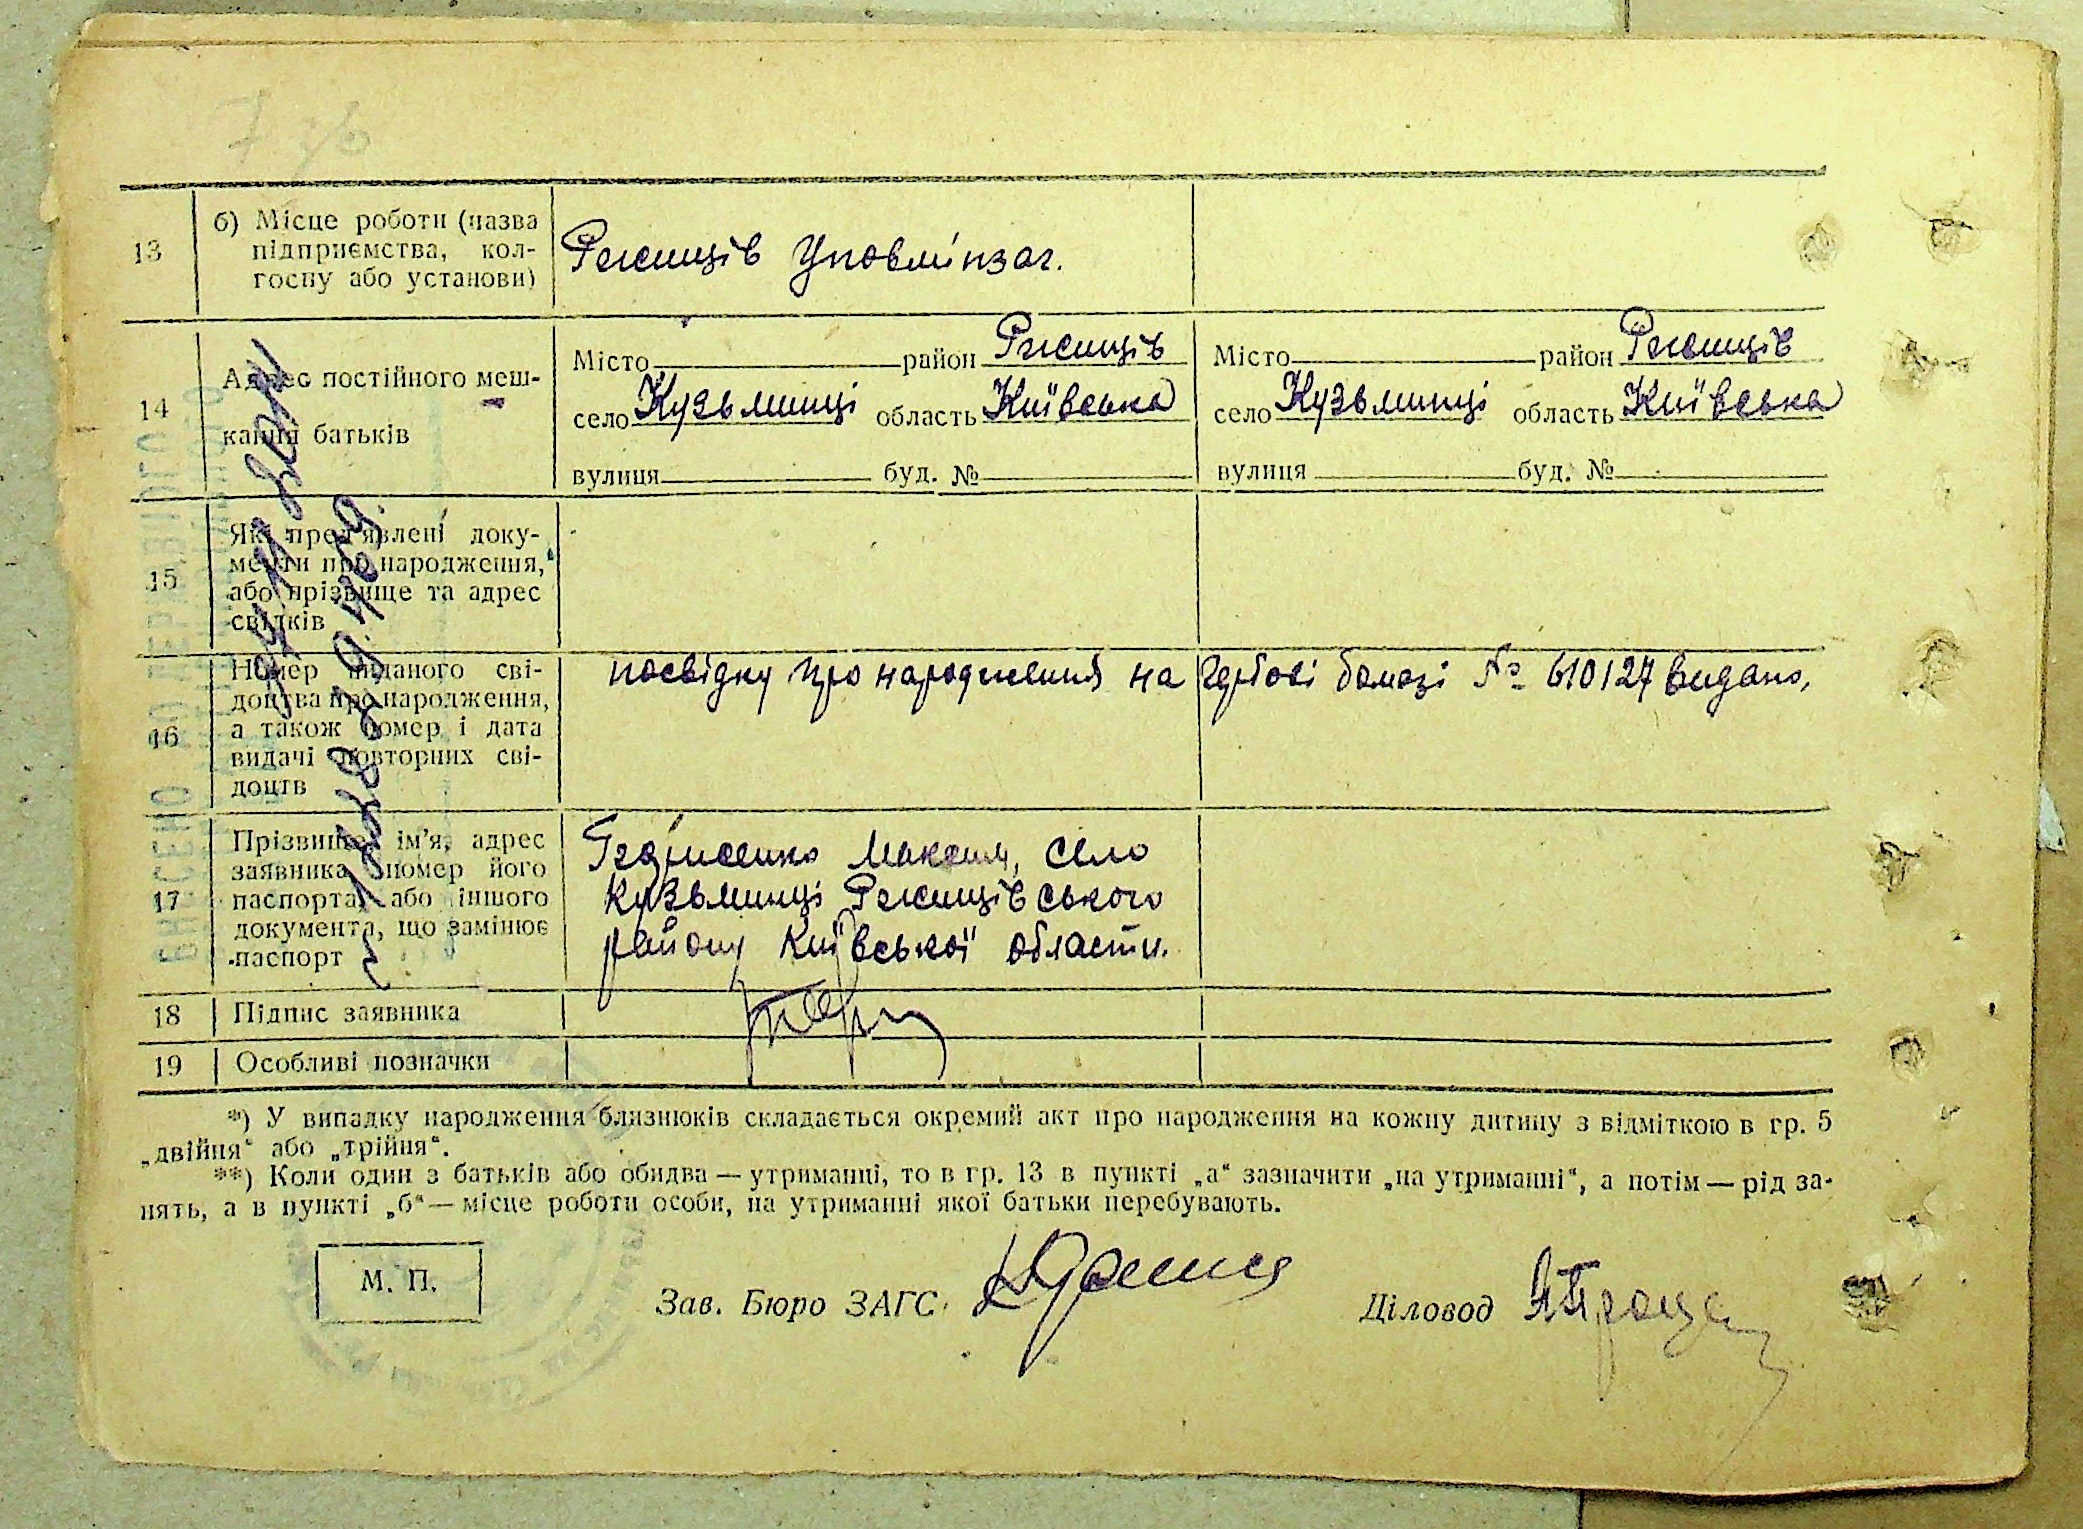 13 б) Місце роботи (назва
підприємства, кол-
госпу або установи)
Ржищів Уповмінзаг.
14 Адрес постійного меш-
кання батьків
Місто район Ржищів
село Кузьминці область Київська
вулиця буд. №
Місто район Ржищів
село Кузьминці область Київська
вулиця буд. №
15 Які пред'явлені доку-
менти про народження,
або прізвище та адрес
свідків
16 Номер виданого сві-
доцтва про народження,
а також номер і дата
видачі повторних сві-
доцтв
посвідку про народження на гербові бомазі № 610127 видано,
17 Прізвище, ім'я, адрес
заявника номер його
паспорта, або іншого
документа, що замінює
паспорт
Максим, село
Кузьминці Ржищівського
району Київської области.
18 Підпис заявника
19 Особливі позначки
*) У випадку народження близнюків складається окремий акт про народження на кожну дитину з відміткою в гр. 5
„двійня“ або „трійня“.
**) Коли один з батьків або обидва — утриманці, то в гр. 13 в пункті „а“ зазначити „на утриманні“, а потім — рід за-
нять, а в пункті „б“ — місце роботи особи, на утриманні якої батьки перебувають.
М. П.
Зав. Бюро ЗАГС
Діловод